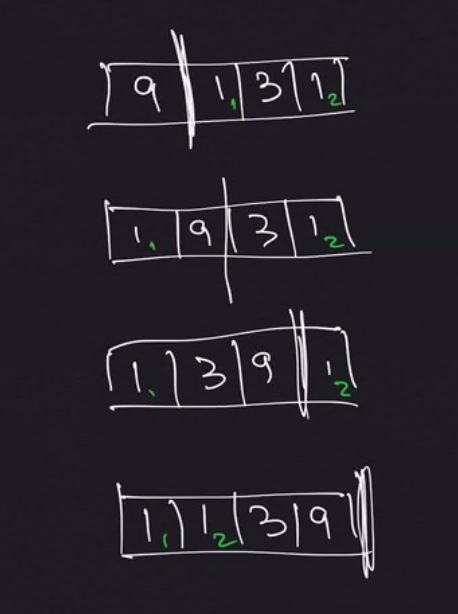 9 1₁ 3 1₂
1₁ 9 3 1₂
1₁ 3 9 1₂
1₁ 1₂ 3 9